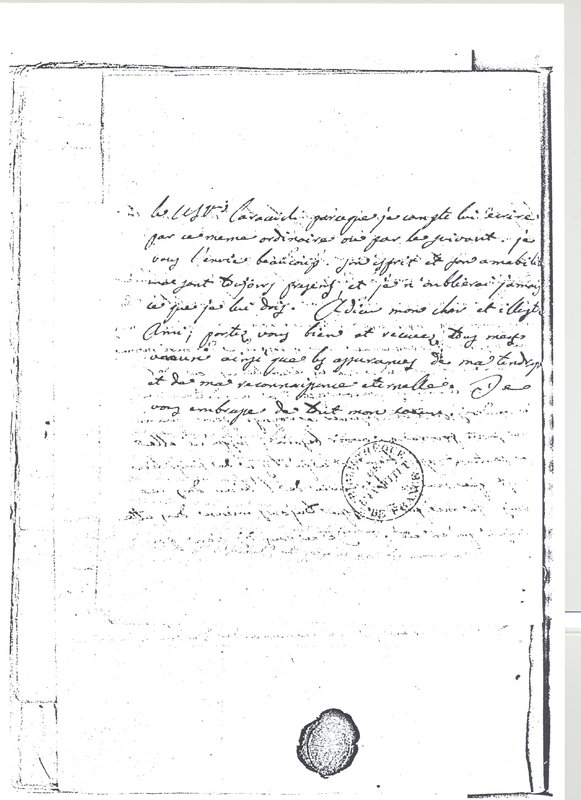 le M Caracioli parceque je compte lui ecrire
par ce meme ordinaire ou par le suivant. je
vous l'envie beaucoup. son esprit et son amabilité
me sont toujours presens et je n'oublierai jamais
ce que je lui dois. Adieu mon cher et illustre
Ami; portez vous bien et recevez tous mes
voeux ainsi que les assurances de ma tendresse
et de ma reconnaissance eternelle. Je
vous embrasse de tout mon coeur.
BIBLIOTHEQUE
DE L'INSTITUT
DE FRANCE